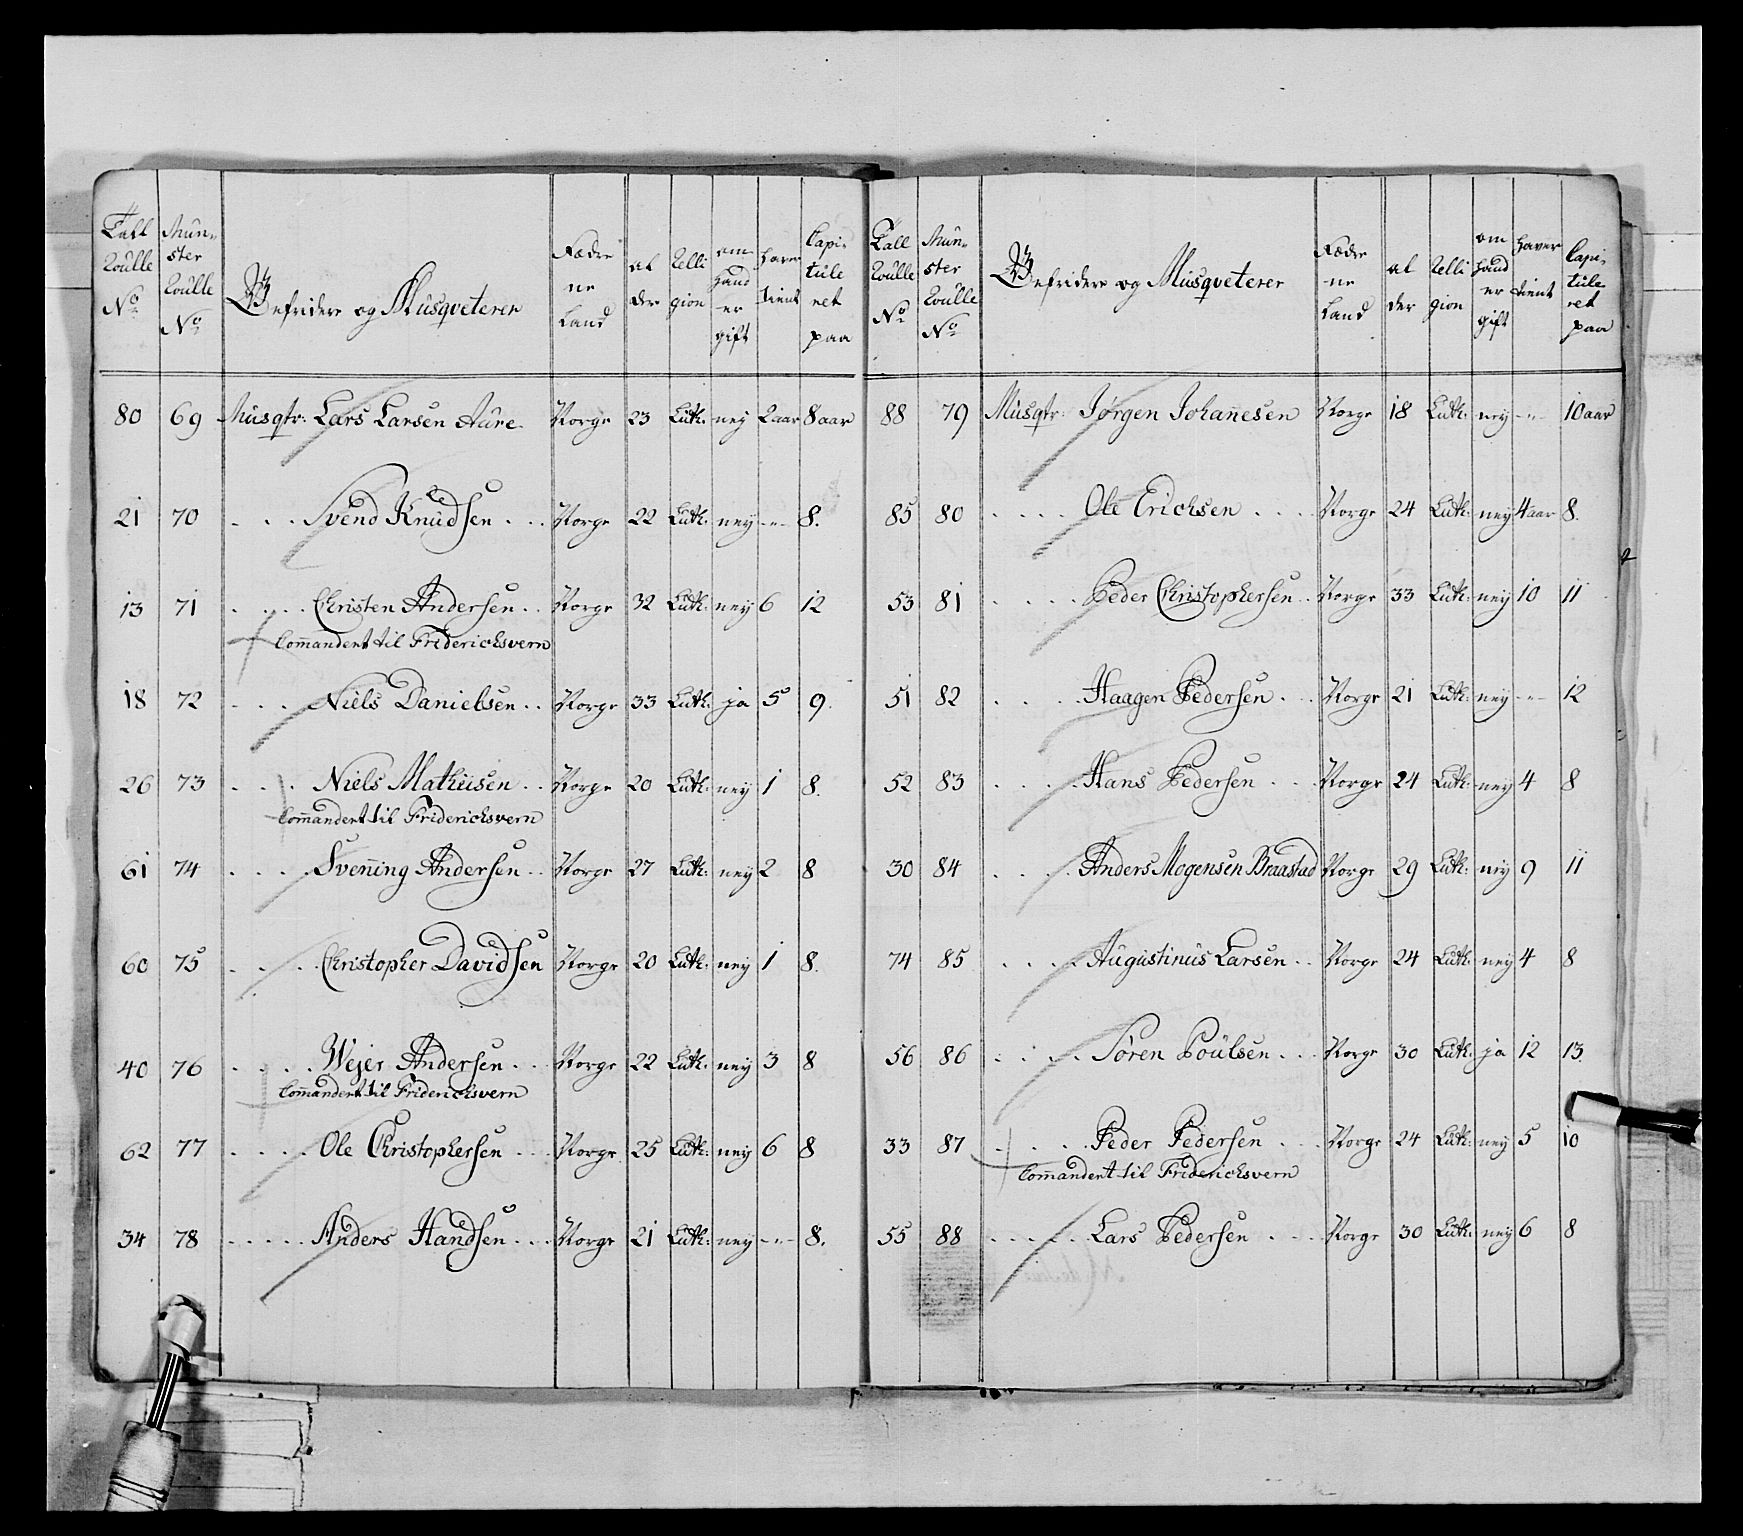 Tall Roulle No | Mün- ster Roulle No | Befridere og Müsqveterer | Fædre ne Land | al der | Relli gion | om hand er gift | haver tient | Capi- tule ret paa
80 69 Müsqtr: Lars Larsen Aüre Norge 23 Luth: ney 2 aar 8 aar
21 70 . . . Svend Knüdsen . . . Norge 22 Luth: ney -"- 8.
13 71 . . . . Christen Andersen . . Norge 32 Luth: ney 6 12
Com̄andert til Friderichsvern
18 72 . . . Niels Danielsen . . Norge 33 Luth: ja 5 9.
26 73 . . . Niels Matheisen . . Norge 20 Luth: ney 1 8.
Com̄andert til Friderichsvern
61 74 . . . . Sven̄ing Andersen . . Norge 27 Luth: ney 2 8
60 75 . . . . Christopher Davidsen Norge 20 Luth: ney 1 8.
40 76 . . . . Wejer Andersen . . . Norge 22 Luth: ney 3 8
Com̄andert til Friderichsvern
62 77 . . . . Ole Christophersen . . . Norge 25 Luth: ney 6 8
34 78 . . . . . Anders Handsen . . . Norge 21 Luth: ney -"- 8.
Tall Roulle No | Mün- ster Roulle No | Befridere og Müsqveterer | Fædre ne Land | al der | Relli gion | om hand er gift | haver tient | Capi- tule ret paa
88 79 Müsqtr: Jørgen Johan̄esen Norge 18 Luth: ney -"- 10 aar
85 80 . . . . Ole Erichsen . . . . Norge 24 Luth: ney 4 aar 8.
53 81 . . . . Peder Christophersen . Norge 33 Luth: ney 10 11
51 82 . . . . Haagen Pedersen . . . Norge 21 Luth: ney -"- 12
52 83 . . . . Hans Pedersen . . . Norge 24 Luth: ney 4 8
30 84 . . . . Anders Mogensen Braastad Norge 29 Luth: ney 9 11
74 85 . . . . Augustinüs Larsen . . Norge 24 Luth: ney 4 8
56 86 . . . . Søren Poülsen . . . Norge 30 Luth: ja 12 13
33 87 . . . . Peder Pedersen . . . Norge 24 Luth: ney 5 10
Com̄andert til Friderichsvern
55 88 . . . . . Lars Pedersen . . . Norge 30 Luth: ney 6 8